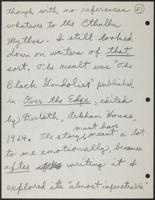 though with no references 21
whatever to the Cthulhu
Mythos. I still looked
down on writers of that
sort. The result was "The
Black Gondolier" published
in Over the Edge, edited
by Derleth, Arkham House,
1964. The story meant a lot
must have
to me emotionally, because
after writing it I
explored its "almost impenetrable"